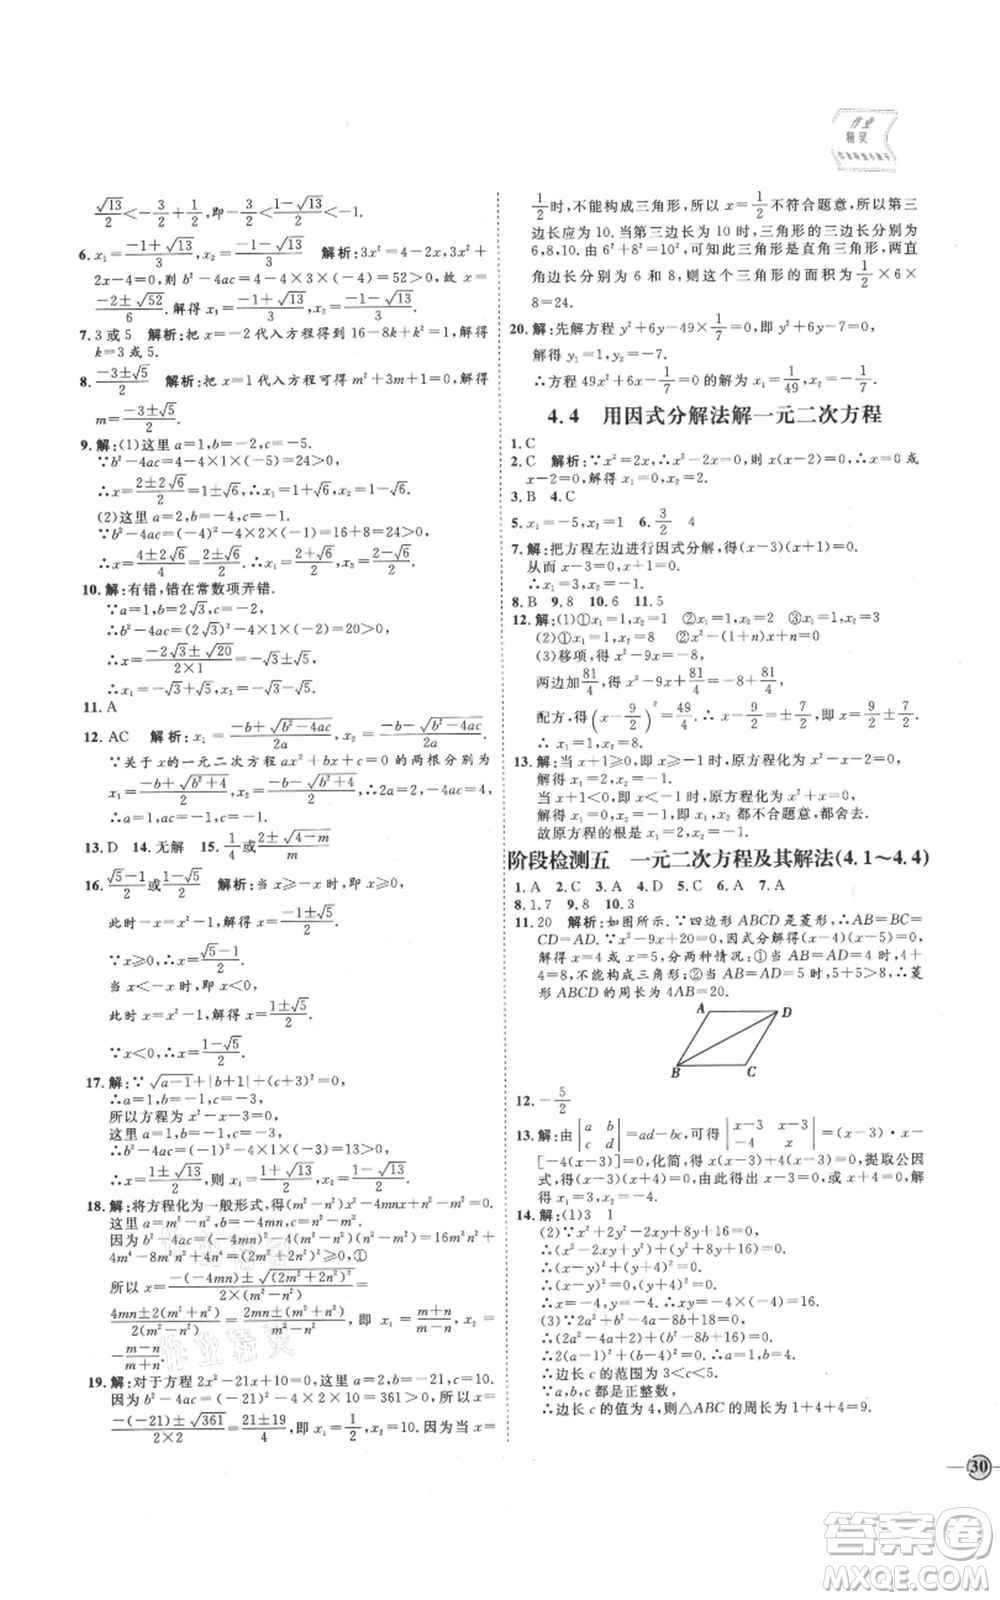 作业
精灵
√13/2<-3/2+1/2,即-√13/2<(1-√13)/2<-1.
6. x₁=(-1+√13)/3,x₂=(-1-√13)/3 解析:3x²=4-2x,3x²+
2x-4=0,则 b²-4ac=4-4×3×(-4)=52>0,故 x=
(-2±√52)/6.解得 x₁=(-1+√13)/3,x₂=(-1-√13)/3.
7.3 或 5 解析:把 x=-2 代入方程得到 16-8k+k²=1.解得
k=3 或 5.
8.(-3±√5)/2 解析:把 x=1 代入方程可得 m²+3m+1=0.解得
m=(-3±√5)/2.
9.解:(1)这里 a=1,b=-2,c=-5.
∵b²-4ac=(-2)²-4×1×(-5)=24>0,
∴x=(2±2√6)/2=1±√6.∴x₁=1+√6,x₂=1-√6.
(2)这里 a=2,b=-4,c=-1.
∵b²-4ac=(-4)²-4×2×(-1)=16+8=24>0,
∴x=(4±2√6)/4=(2±√6)/2.∴x₁=(2+√6)/2,x₂=(2-√6)/2.
10.解:有错,错在常数项弄错.
∵a=1,b=2√3,c=-2,
∴b²-4ac=(2√3)²-4×1×(-2)=20>0,
∴x=(-2√3±√20)/(2×1),
∴x₁=-√3+√5,x₂=-√3-√5.
11. A
12. AC 解析:x₁=(-b+√(b²-4ac))/2a,x₂=(-b-√(b²-4ac))/2a.
∵关于 x 的一元二次方程 ax²+bx+c=0 的两根分别为
x₁=(-b+√(b²+4))/2,x₂=(-b-√(b²+4))/2,∴2a=2,-4ac=4,
∴a=1,c=-1.
13. D 14.无解 15.1/4 或 (2±√(4-m))/m
16.(√5-1)/2 或(1-√5)/2 解析:当 x≥-x 时,即 x≥0,
此时-x=x²-1,解得 x=(-1±√5)/2.
∵x≥0,∴x=(√5-1)/2.
当 x<-x 时,即 x<0,
此时 x=x²-1,解得 x=(1±√5)/2.
∵x<0,∴x=(1-√5)/2.
17.解:∵√(a-1)+|b+1|+(c+3)²=0,
∴a=1,b=-1,c=-3.
所以方程为 x²-x-3=0,
这里 a=1,b=-1,c=-3.
∴b²-4ac=(-1)²-4×1×(-3)=13>0,
∴x=(1±√13)/2,则 x₁=(1+√13)/2,x₂=(1-√13)/2.
18.解:将方程化为一般形式,得(m²-n²)x²-4mnx+n²-m²=0.
这里 a=m²-n²,b=-4mn,c=n²-m².
因为 b²-4ac=(-4mn)²-4(m²-n²)(n²-m²)=16m²n²+
4m⁴-8m²n²+4n⁴=(2m²+2n²)²≥0,①
所以 x=(-(-4mn)±√(2m²+2n²)²)/(2×(m²-n²))=
(4mn±2(m²+n²))/(2(m²-n²))=(2mn±(m²+n²))/(m²-n²),即 x₁=(m+n)/(m-n),x₂=
-(m-n)/(m+n).
19.解:对于方程 2x²-21x+10=0,a=2,b=-21,c=10.
因为 b²-4ac=(-21)²-4×2×10=361>0,所以 x=
(-(-21)±√361)/(2×2)=(21±19)/4,即 x₁=1/2,x₂=10.当 x=
1/2时,不能构成三角形,所以 x=1/2 不符合题意,故第三
边长应为 10.当第三边长为 10 时,三角形的三边长为
6,8,10.由 6²+8²=10²,可知此三角形为直角三角形,两直
角边长分别为 6 和 8,则这个三角形的面积为1/2×6×
8=24.
20.解:先解方程 y²+6y-49×1/7=0,即 y²+6y-7=0,
解得 y₁=1,y₂=-7.
∴方程 49x²+6x-1/7=0 的解为 x₁=1/49,x₂=-1/7.
4.4 用因式分解法解一元二次方程
1. C
2. C 解析:∵x²=2x,∴x²-2x=0,则 x(x-2)=0,∴x=0 或
x-2=0,解得 x₁=0,x₂=2.
3. B 4. C
5. x₁=-5,x₂=1 6.3/2 4
7.解:把方程左边进行因式分解,得(x-3)(x+1)=0.
从而 x-3=0 或 x+1=0.
∴x₁=3,x₂=-1.
8. B 9. 8 10. 6 11. 5
12.解:(1)①x₁=1,x₂=1 ②x₁=1,x₂=2 ③x₁=1,x₂=3
(2)①x₁=1,x₂=8 ②x²-(1+n)x+n=0
(3)移项,得 x²-9x=-8,
两边加81/4,得 x²-9x+81/4=-8+81/4,
配方,得(x-9/2)²=49/4.∴x-9/2=±7/2,即 x=9/2±7/2,
∴x₁=1,x₂=8.
13.解:当 x+1≥0,即 x≥-1 时,原方程化为 x²-x-2=0,
解得 x₁=-1,x₂=2.
当 x+1<0,即 x<-1 时,原方程化为 x²+x=0,
解得 x₁=0,x₂=-1.此时 x₁,x₂都不合题意,都舍去.
故原方程的根是 x₁=-1,x₂=2.
阶段检测五 一元二次方程及其解法(4.1~4.4)
1. A 2. C 3. A 4. D 5. C 6. A 7. A
8. 1,7 9. 8 10. 3
11.20 解析:如图所示.∵四边形 ABCD 是菱形,∴AB=BC=
CD=AD.∵x²-9x+20=0,因式分解得(x-4)(x-5)=0,
解得 x=4 或 x=5,分两种情况:①当 AB=AD=4 时,4+
4=8,不能构成三角形;②当 AB=AD=5 时,5+5>8,∴菱
形 ABCD 的周长为 4AB=20.
A D
B C
12.-5/2
13.解:由 |a b; c d|=ad-bc,可得 |x-3 x-3; -4 x|=x(x-3)-
[-4(x-3)]=0,化简,得 x(x-3)+4(x-3)=0,提取公因
式,得(x-3)(x+4)=0,即 x-3=0 或 x+4=0,
解得 x₁=3,x₂=-4.
14.解:(1)3 1
(2)∵x²+2y²-2xy+8y+16=0,
∴(x²-2xy+y²)+(y²+8y+16)=0,
∴(x-y)²+(y+4)²=0,∴x-y=0,y+4=0,
∴x=-4,y=-4.∴xy=-4×(-4)=16.
(3)∵2a²+b²-4a-8b+18=0,
∴(2a²-4a+2)+(b²-8b+16)=0,
∴2(a-1)²+(b-4)²=0,∴a=1,b=4.
∴边长 c 的范围为 3<c<5.
∵a,b,c 都是正整数,
∴边长 c 的值为 4,则△ABC 的周长为 1+4+4=9.
30
作业精灵
答案卷